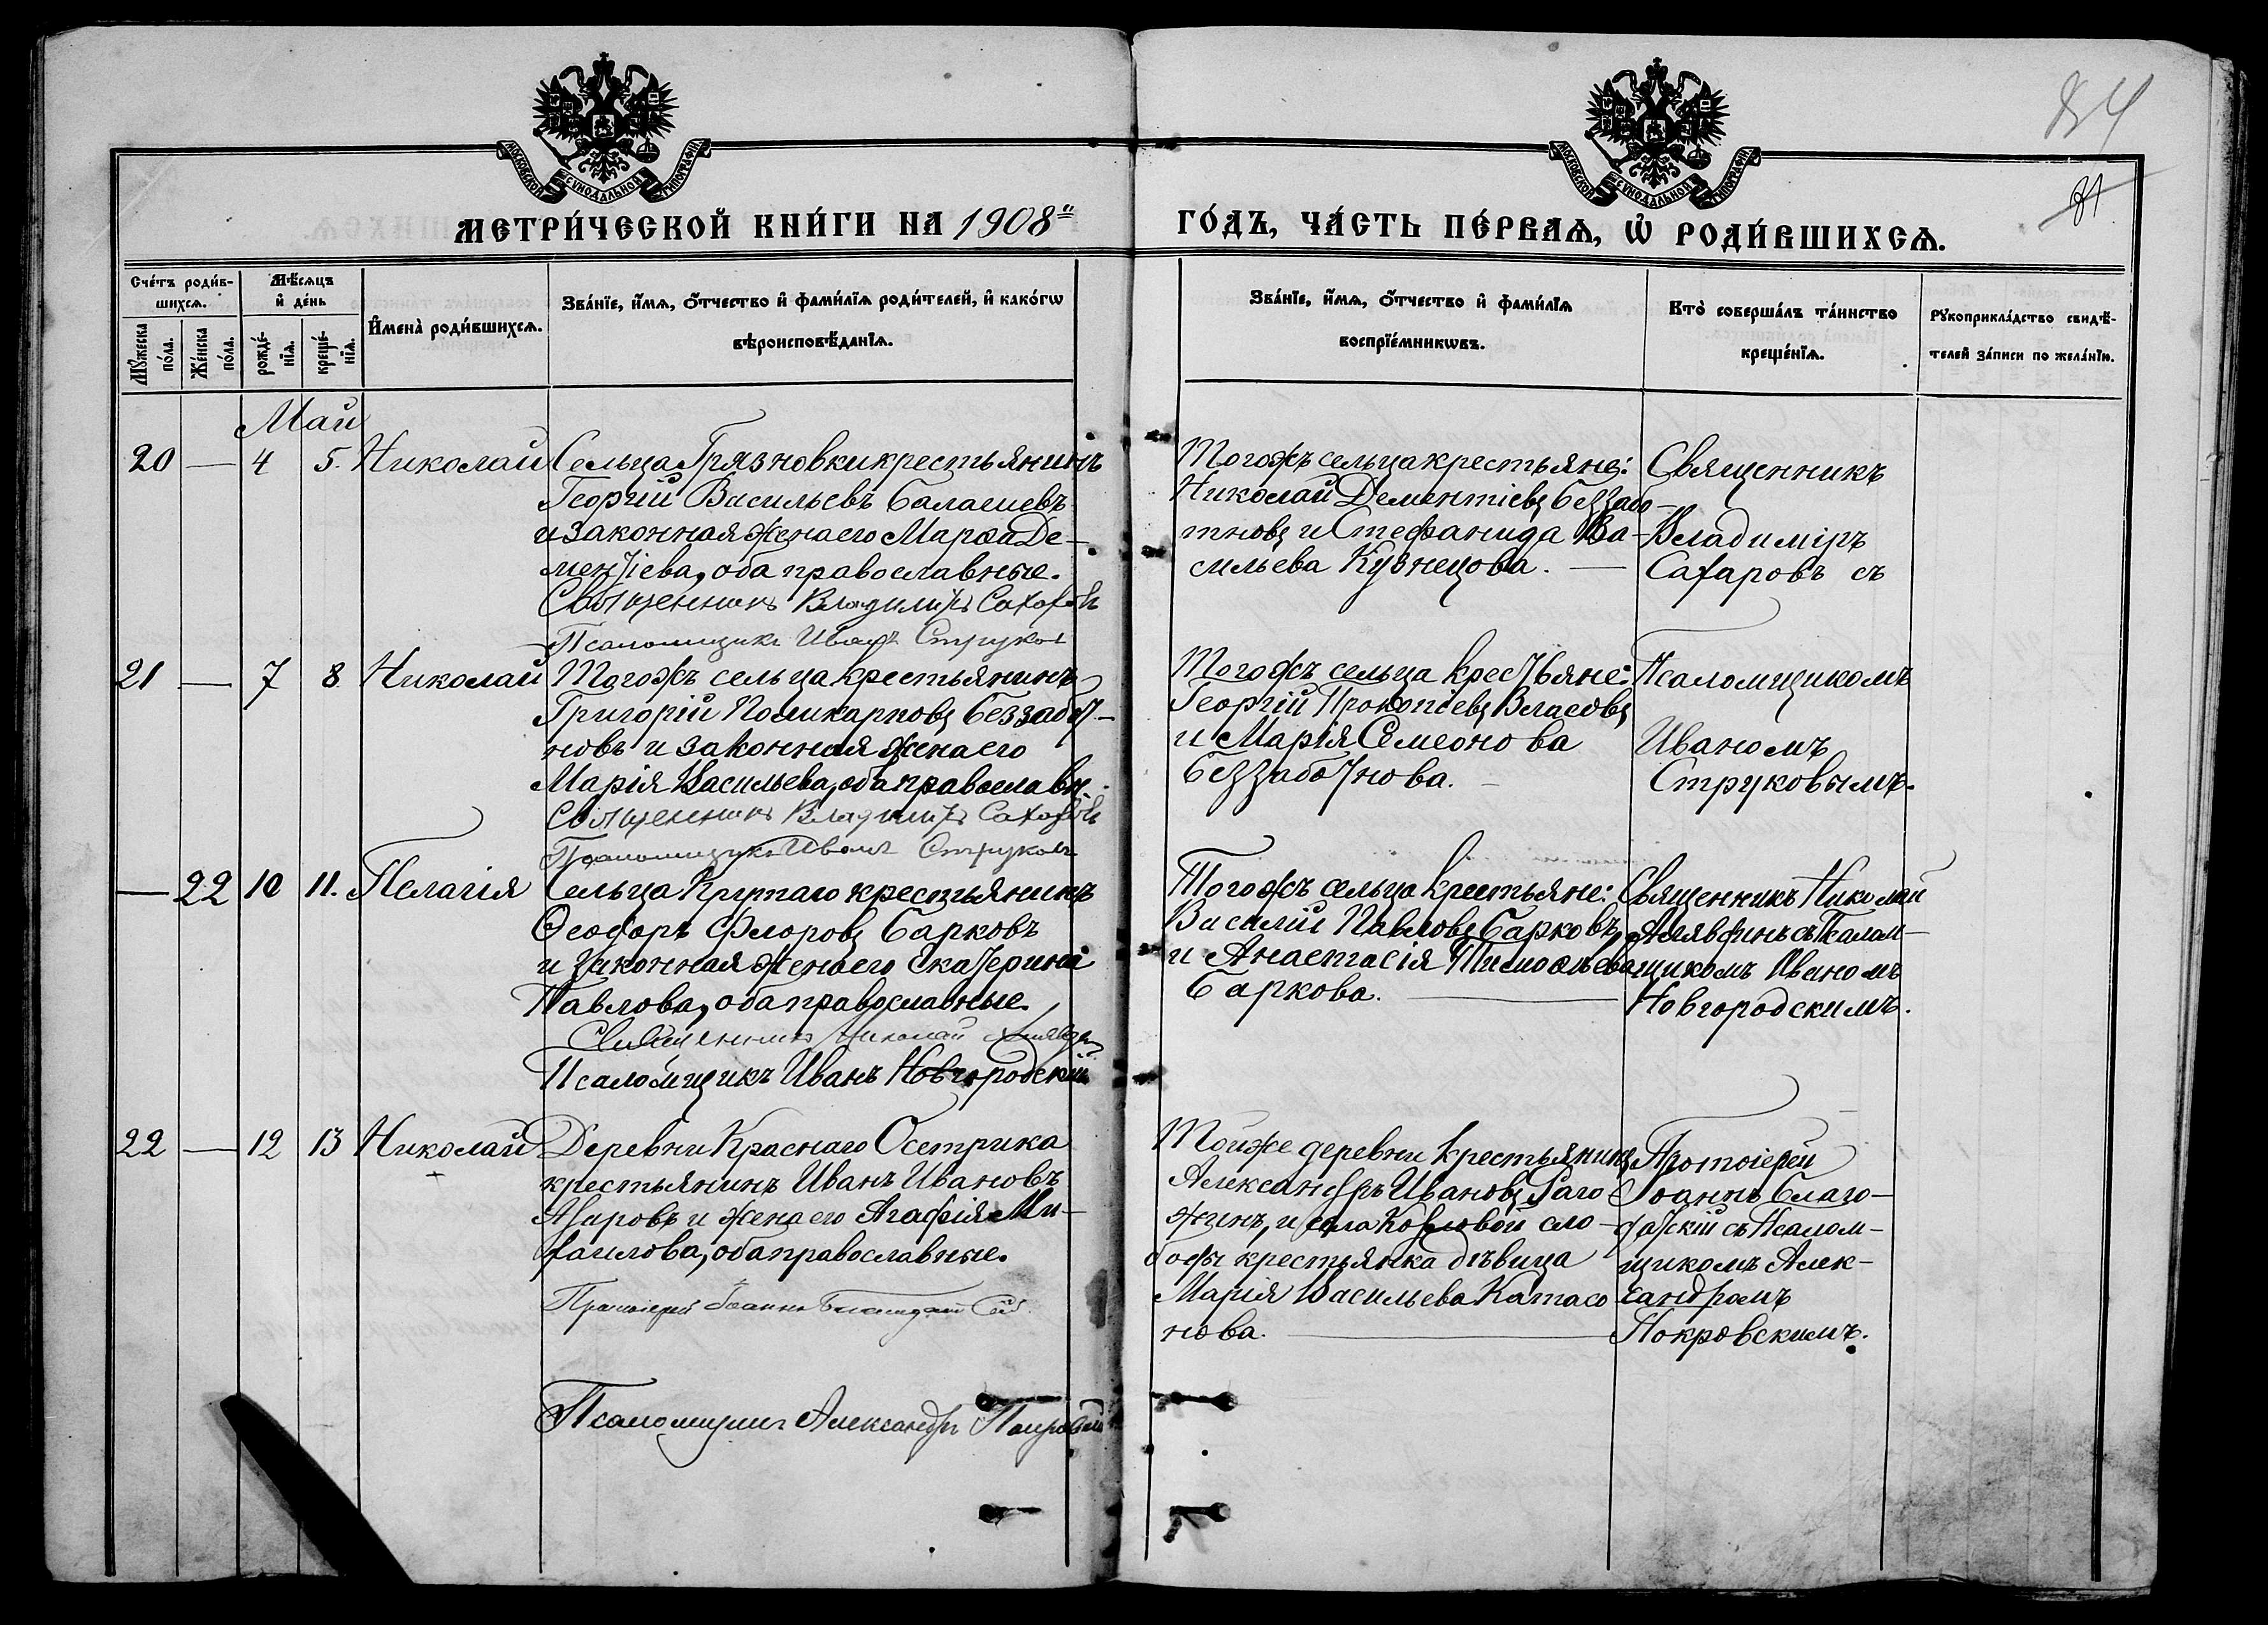 84
81
МОСКОВСКОЙ СѴНОДАЛЬНОЙ ТИПОГРАФІИ
МОСКОВСКОЙ СѴНОДАЛЬНОЙ ТИПОГРАФІИ
МЕТРИ́ЧЕСКОЙ КНИ́ГИ НА 1908й
ГО́ДЪ, ЧА́СТЬ ПЕ́РВАѦ, Ѡ҆ РОДИ́ВШИХСѦ.
Сче́тъ роди́в-
шихсѧ.
Мѣ́сѧцъ
и҆ де́нь
Мꙋ́жеска по́ла.
Же́нска по́ла.
рожде́-нїѧ.
креще́-нїѧ.
И҆мена̀ роди́вшихсѧ.
Зва́нїе, и҆́мѧ, о҆́тчество и҆ фами́лїѧ роди́телей, и҆ како́гѡ
вѣроисповѣ́данїѧ.
Зва́нїе, и҆́мѧ, о҆́тчество и҆ фами́лїѧ
воспрїе́мникѡвъ.
Кто̀ соверша́лъ та́инство
креще́нїѧ.
Рꙋкоприкла́дство свидѣ́-
телей за́писи по жела́нїю.
Май
20 — 4 5. Николай Сельца Грязновки крестьянинъ
Георгій Васильевъ Балашевъ
и законная жена его Марѳа Де-
ментіева, оба православные.
Священникъ Владиміръ Сахаровъ
Псаломщикъ Иванъ Струковъ
Тогожъ сельца крестьяне:
Николай Дементіевъ Беззабо-
тновъ и Стефанида Ва-
сильева Кузнецова. —
Священникъ
Владиміръ
Сахаровъ съ
21 — 7 8 Николай Тогожъ сельца крестьянинъ
Григорій Поликарповъ Беззабот-
новъ и законная жена его
Марія Васильева, оба православн.
Священникъ Владиміръ Сахаровъ
Псаломщикъ Иванъ Струковъ
Тогожъ сельца крестьяне:
Георгій Прокопіевъ Власовъ
и Марія Семеонова
Беззаботнова. —
Псаломщикомъ
Иваномъ
Струковымъ.
— 22 10 11. Пелагія Сельца Крутаго крестьянинъ
Ѳеодоръ Флоровъ Барковъ
и законная жена его Екатерина
Павлова, оба православные.
Священникъ Николай
Псаломщикъ Иванъ Новгородскій
Тогожъ сельца крестьяне:
Василій Павловъ Барковъ,
и Анастасія Тимоѳеева
Баркова. —
Священникъ Николай
съ Псалом-
щикомъ Иваномъ
Новгородскимъ.
22 — 12 13 Николай Деревни Краснаго Осетрика
крестьянинъ Иванъ Ивановъ
Азаровъ и жена его Агафія Ми-
хаилова, оба православные.
Протоіерей Іоаннъ
Псаломщикъ Александръ Покровскій
Тойже деревни крестьянинъ
Александръ Ивановъ Раго-
жинъ, и села Козловой сло-
боды крестьянка дѣвица
Марія Васильева Катасо
нова. —
Протоіерей
Іоаннъ Благо-
датскій съ Псалом-
щикомъ Алек-
сандромъ
Покровскимъ.